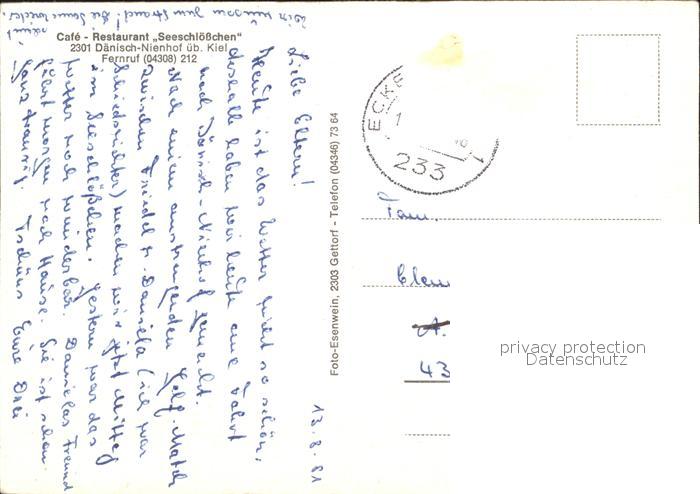 Café - Restaurant „Seeschlößchen"
2301 Dänisch-Nienhof üb. Kiel
Fernruf (04308) 212
13. 8. 81
Liebe Eltern!
Heute ist das Wetter nicht so schön,
deshalb haben wir heute eine Fahrt
nach Dänisch-Nienhof gemacht.
Nach einem anstrengenden Golf-Match
zwischen Friedel + Daniela (ich war
Schiedsrichter) machen wir jetzt Mittag
im Seeschlößchen. Gestern war das
Wetter noch wunderbar. Danielas Freund
fährt morgen nach Hause. Sie ist schon
ganz traurig. Tschüss Eure Drei
Wir müssen zum Strand! Die Sonne
scheint
Foto-Esenwein, 2303 Gettorf - Telefon (04346) 73 64
ECKE
1
233
Fam.
Clem
A.
43
privacy protection
Datenschutz